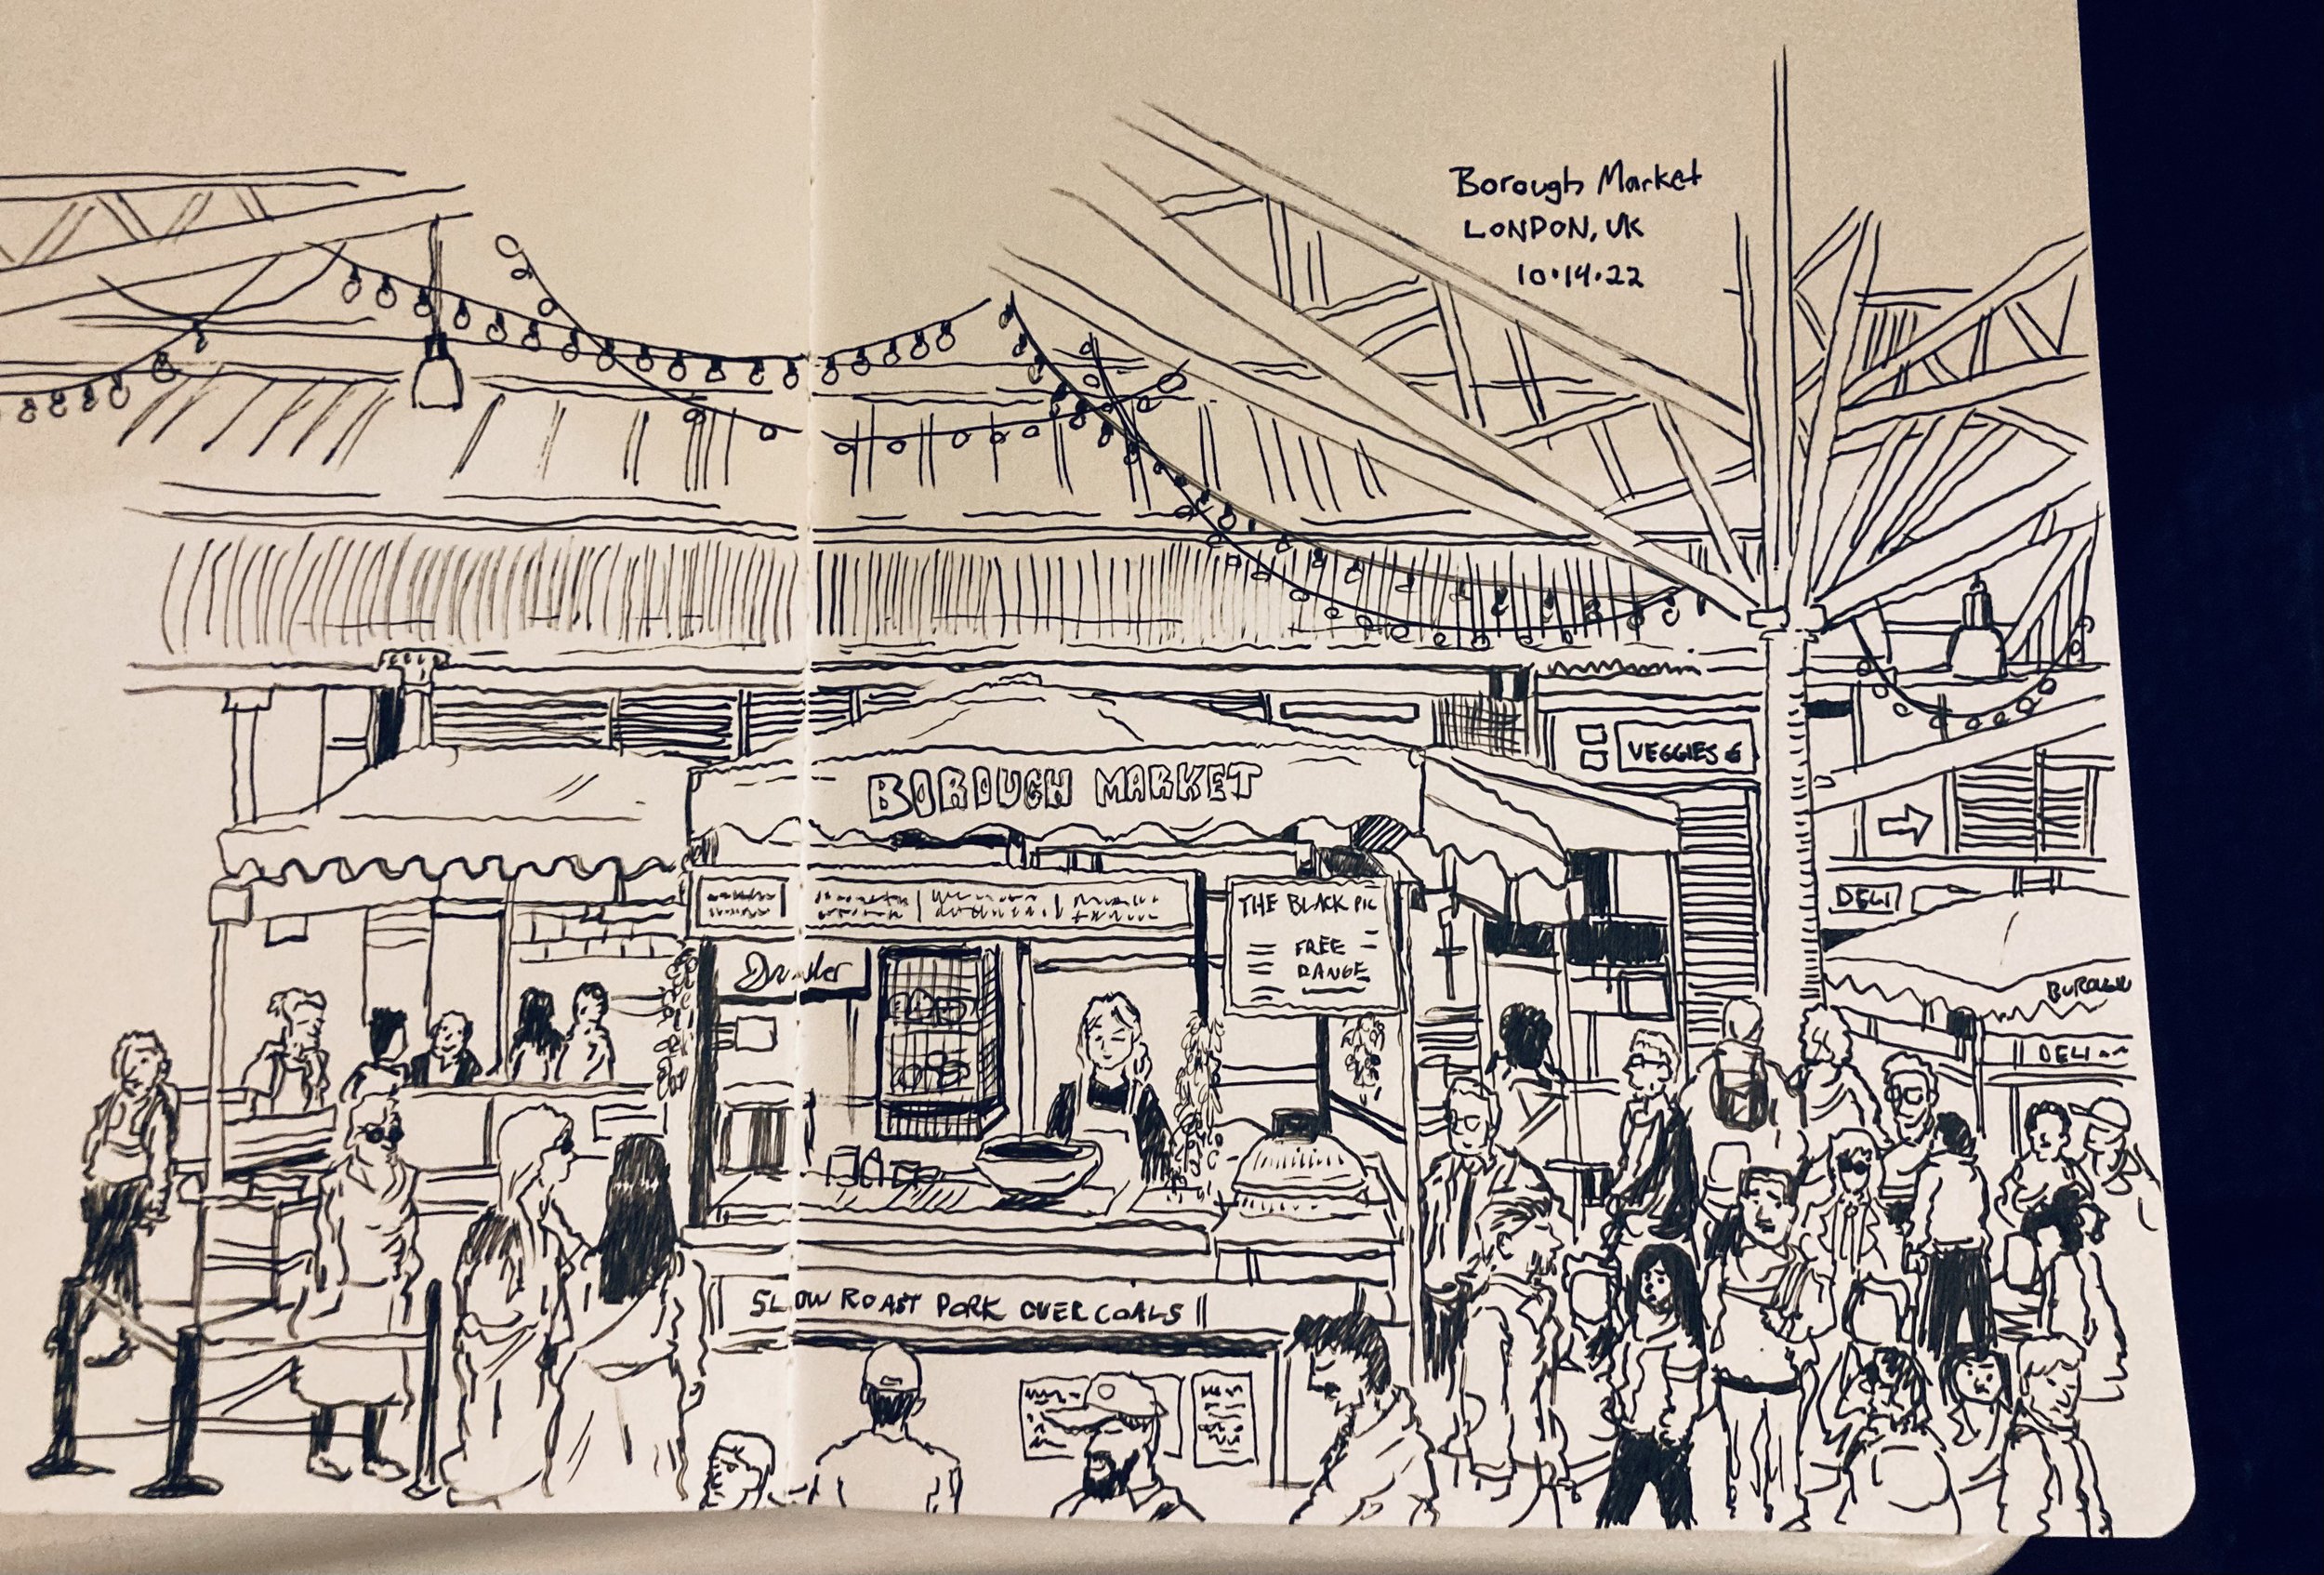 Borough Market
LONDON, UK
10•14•22
VEGGIES &
BOROUGH MARKET
DELI
THE BLACK PIG
FREE
RANGE
DELI
SLOW ROAST PORK OVER COALS